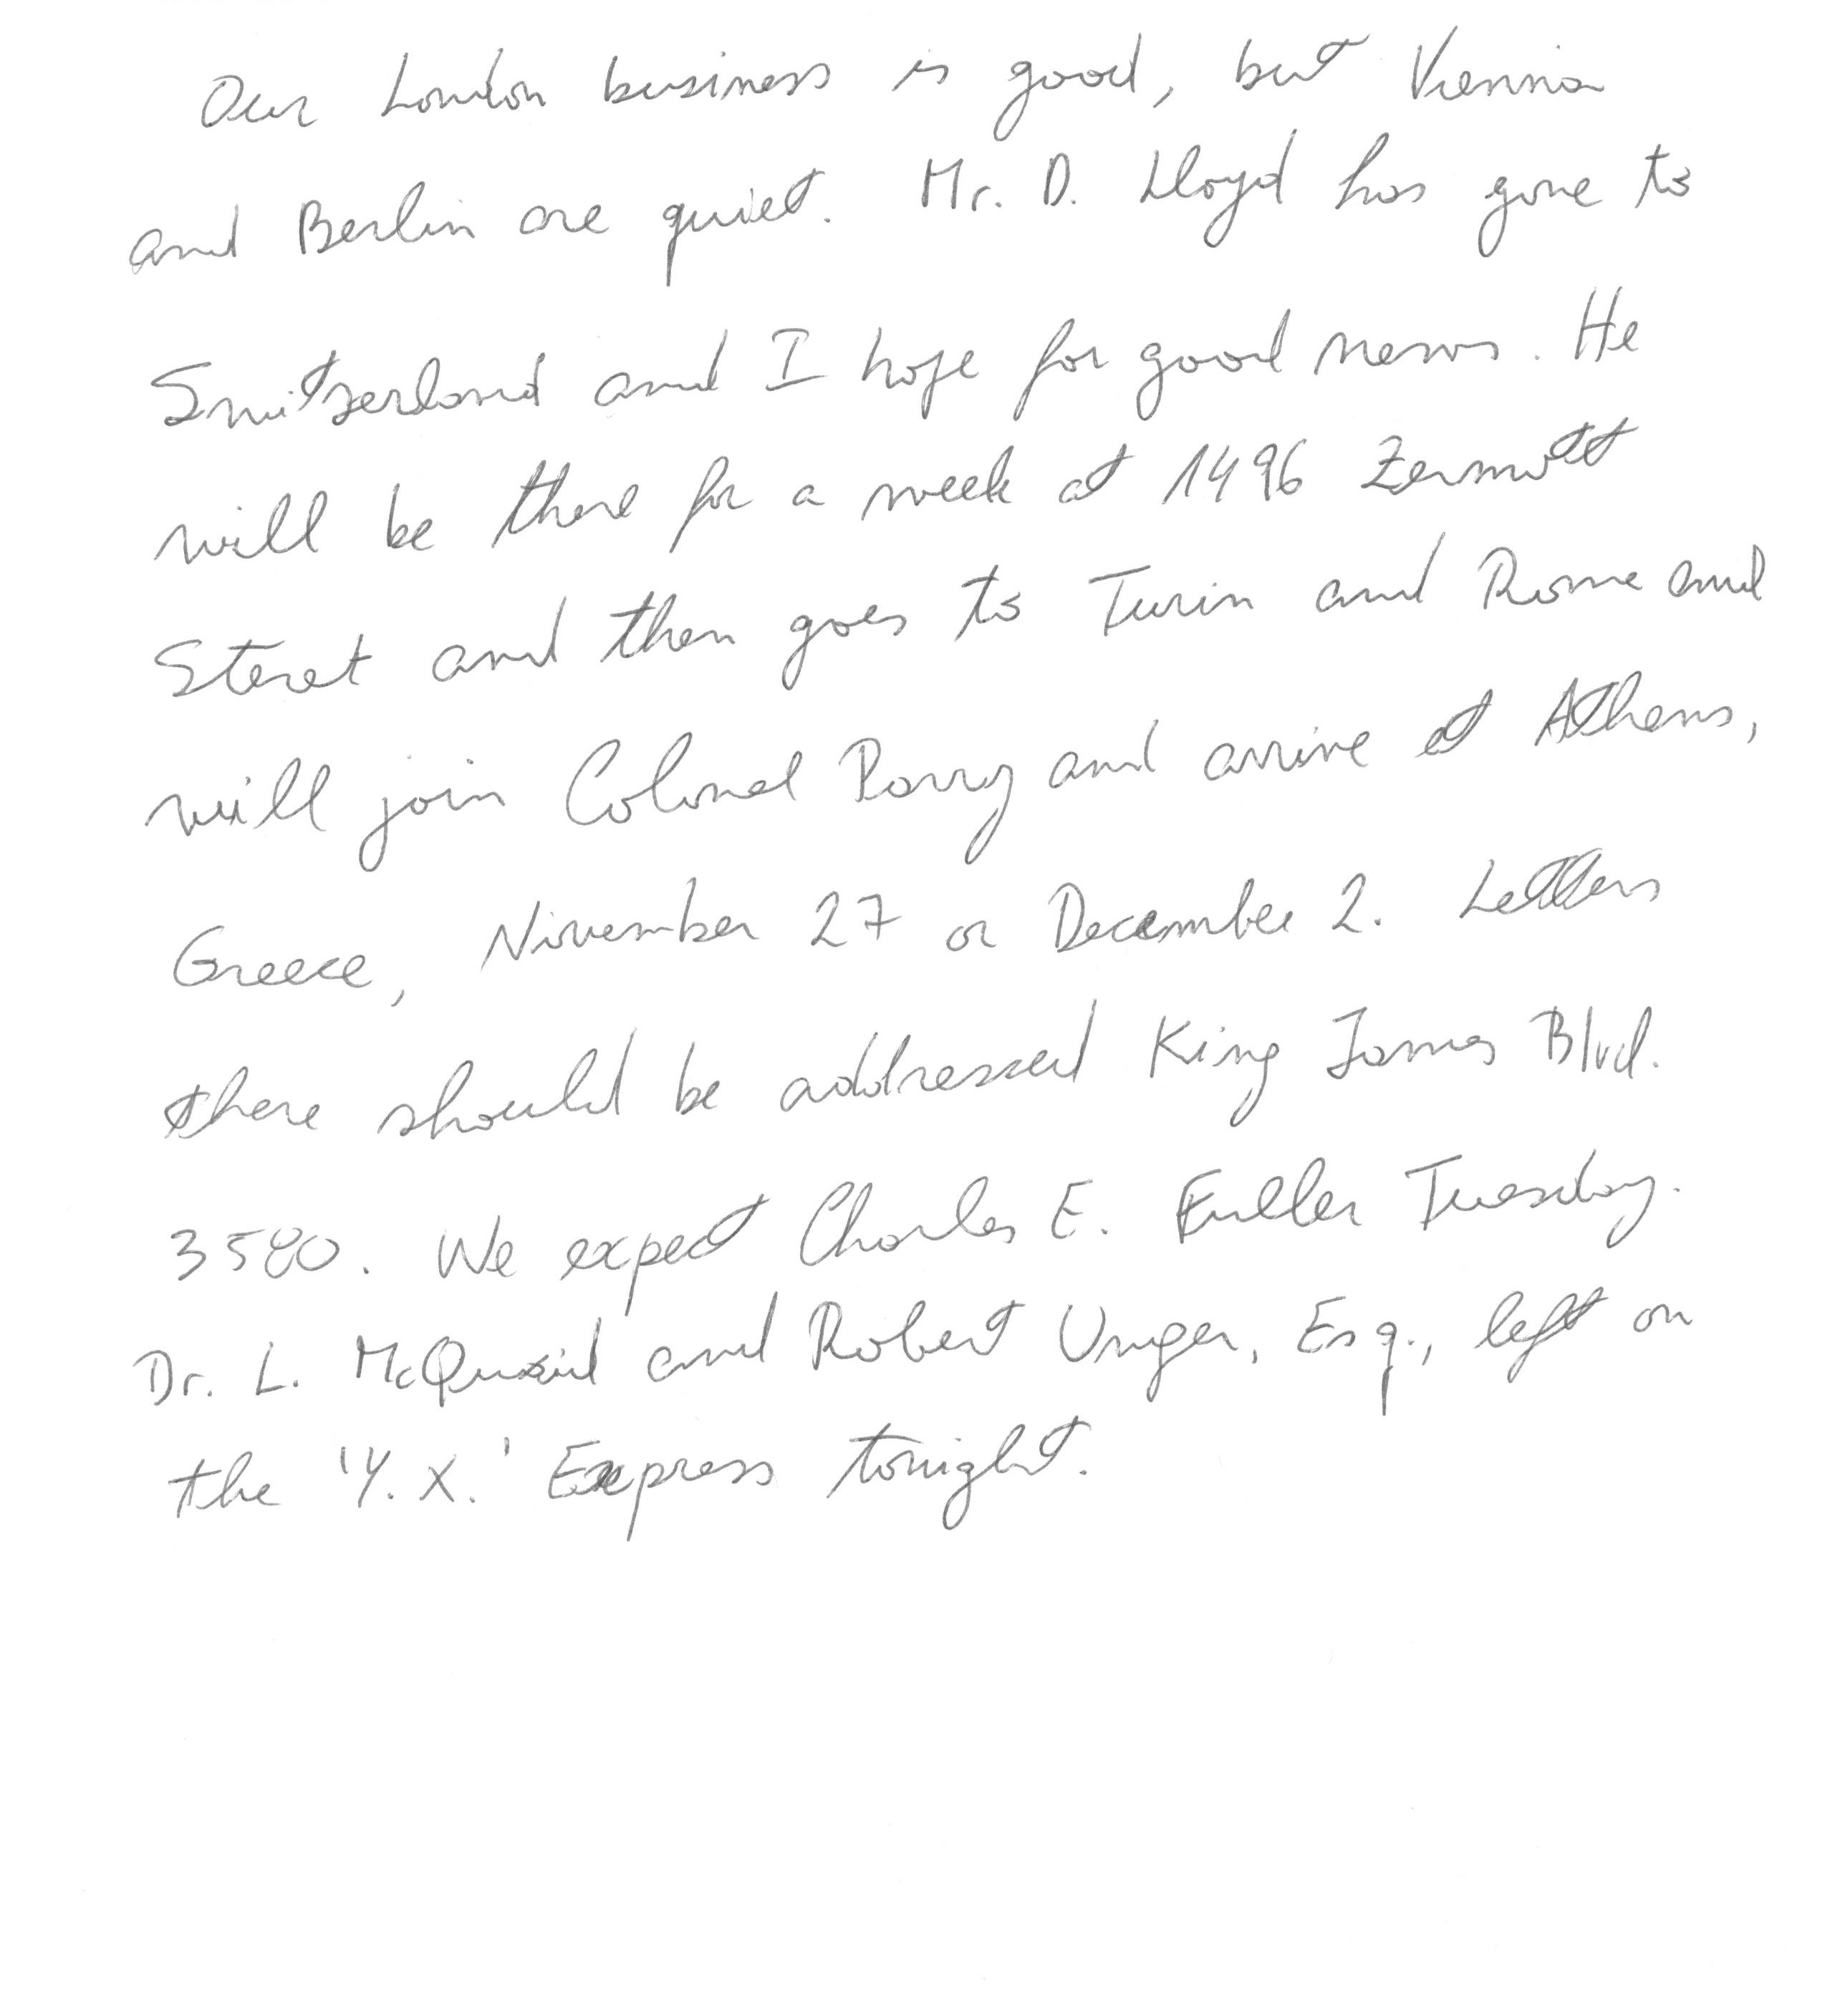 Our London business is good, but Vienna
and Berlin are quiet. Mr. D. Lloyd has gone to
Switzerland and I hope for good news. He
will be there for a week at 1496 Zermott
Steret and then goes to Turin and Rome and
will join Colonel Parry and arrive at Athens,
Greece, November 27 or December 2. Letters
there should be addressed King James Blvd.
3580. We expect Charles E. Fuller Tuesday.
Dr. L. McQuaid and Robert Unger, Esq., left on
the 'Y. X.' Express tonight.